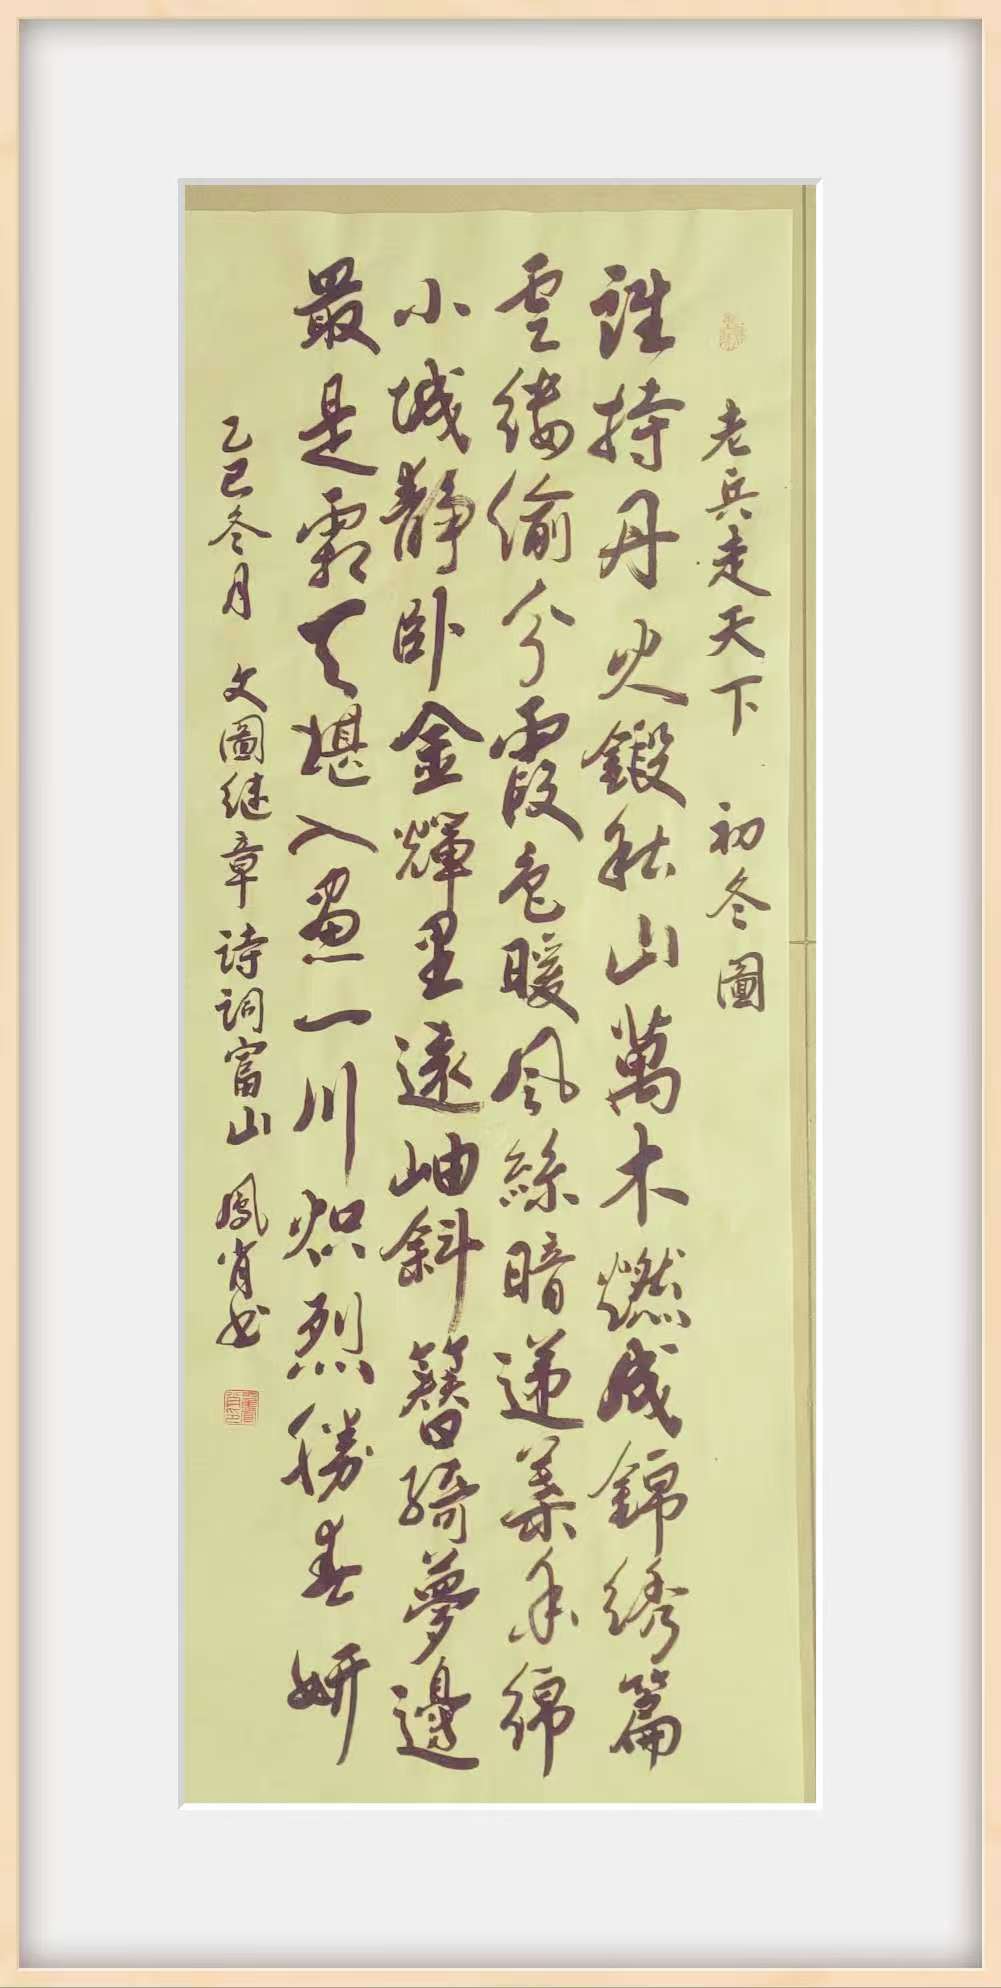 老兵走天下 初冬圖
誰持丹火鍛秋山萬木燃成錦绣篇
雲缕偷分霞色暖風絲暗递葉香綿
小城静卧金輝里遠岫斜簪綺夢邊
最是霜天堪入畫一川炽烈勝春妍
乙巳冬月 文圖继章 詩詞富山 鳳肖书